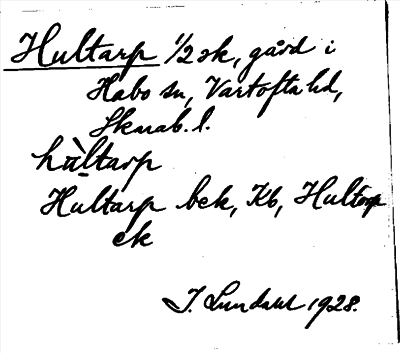 Hultarp 1/2 sk, gård i
Habo sn, Vartofta hd,
Skarab. l.
hùltarp
Hultarp bek, Kb, Hultorp
ek
J. Lundahl 1928.